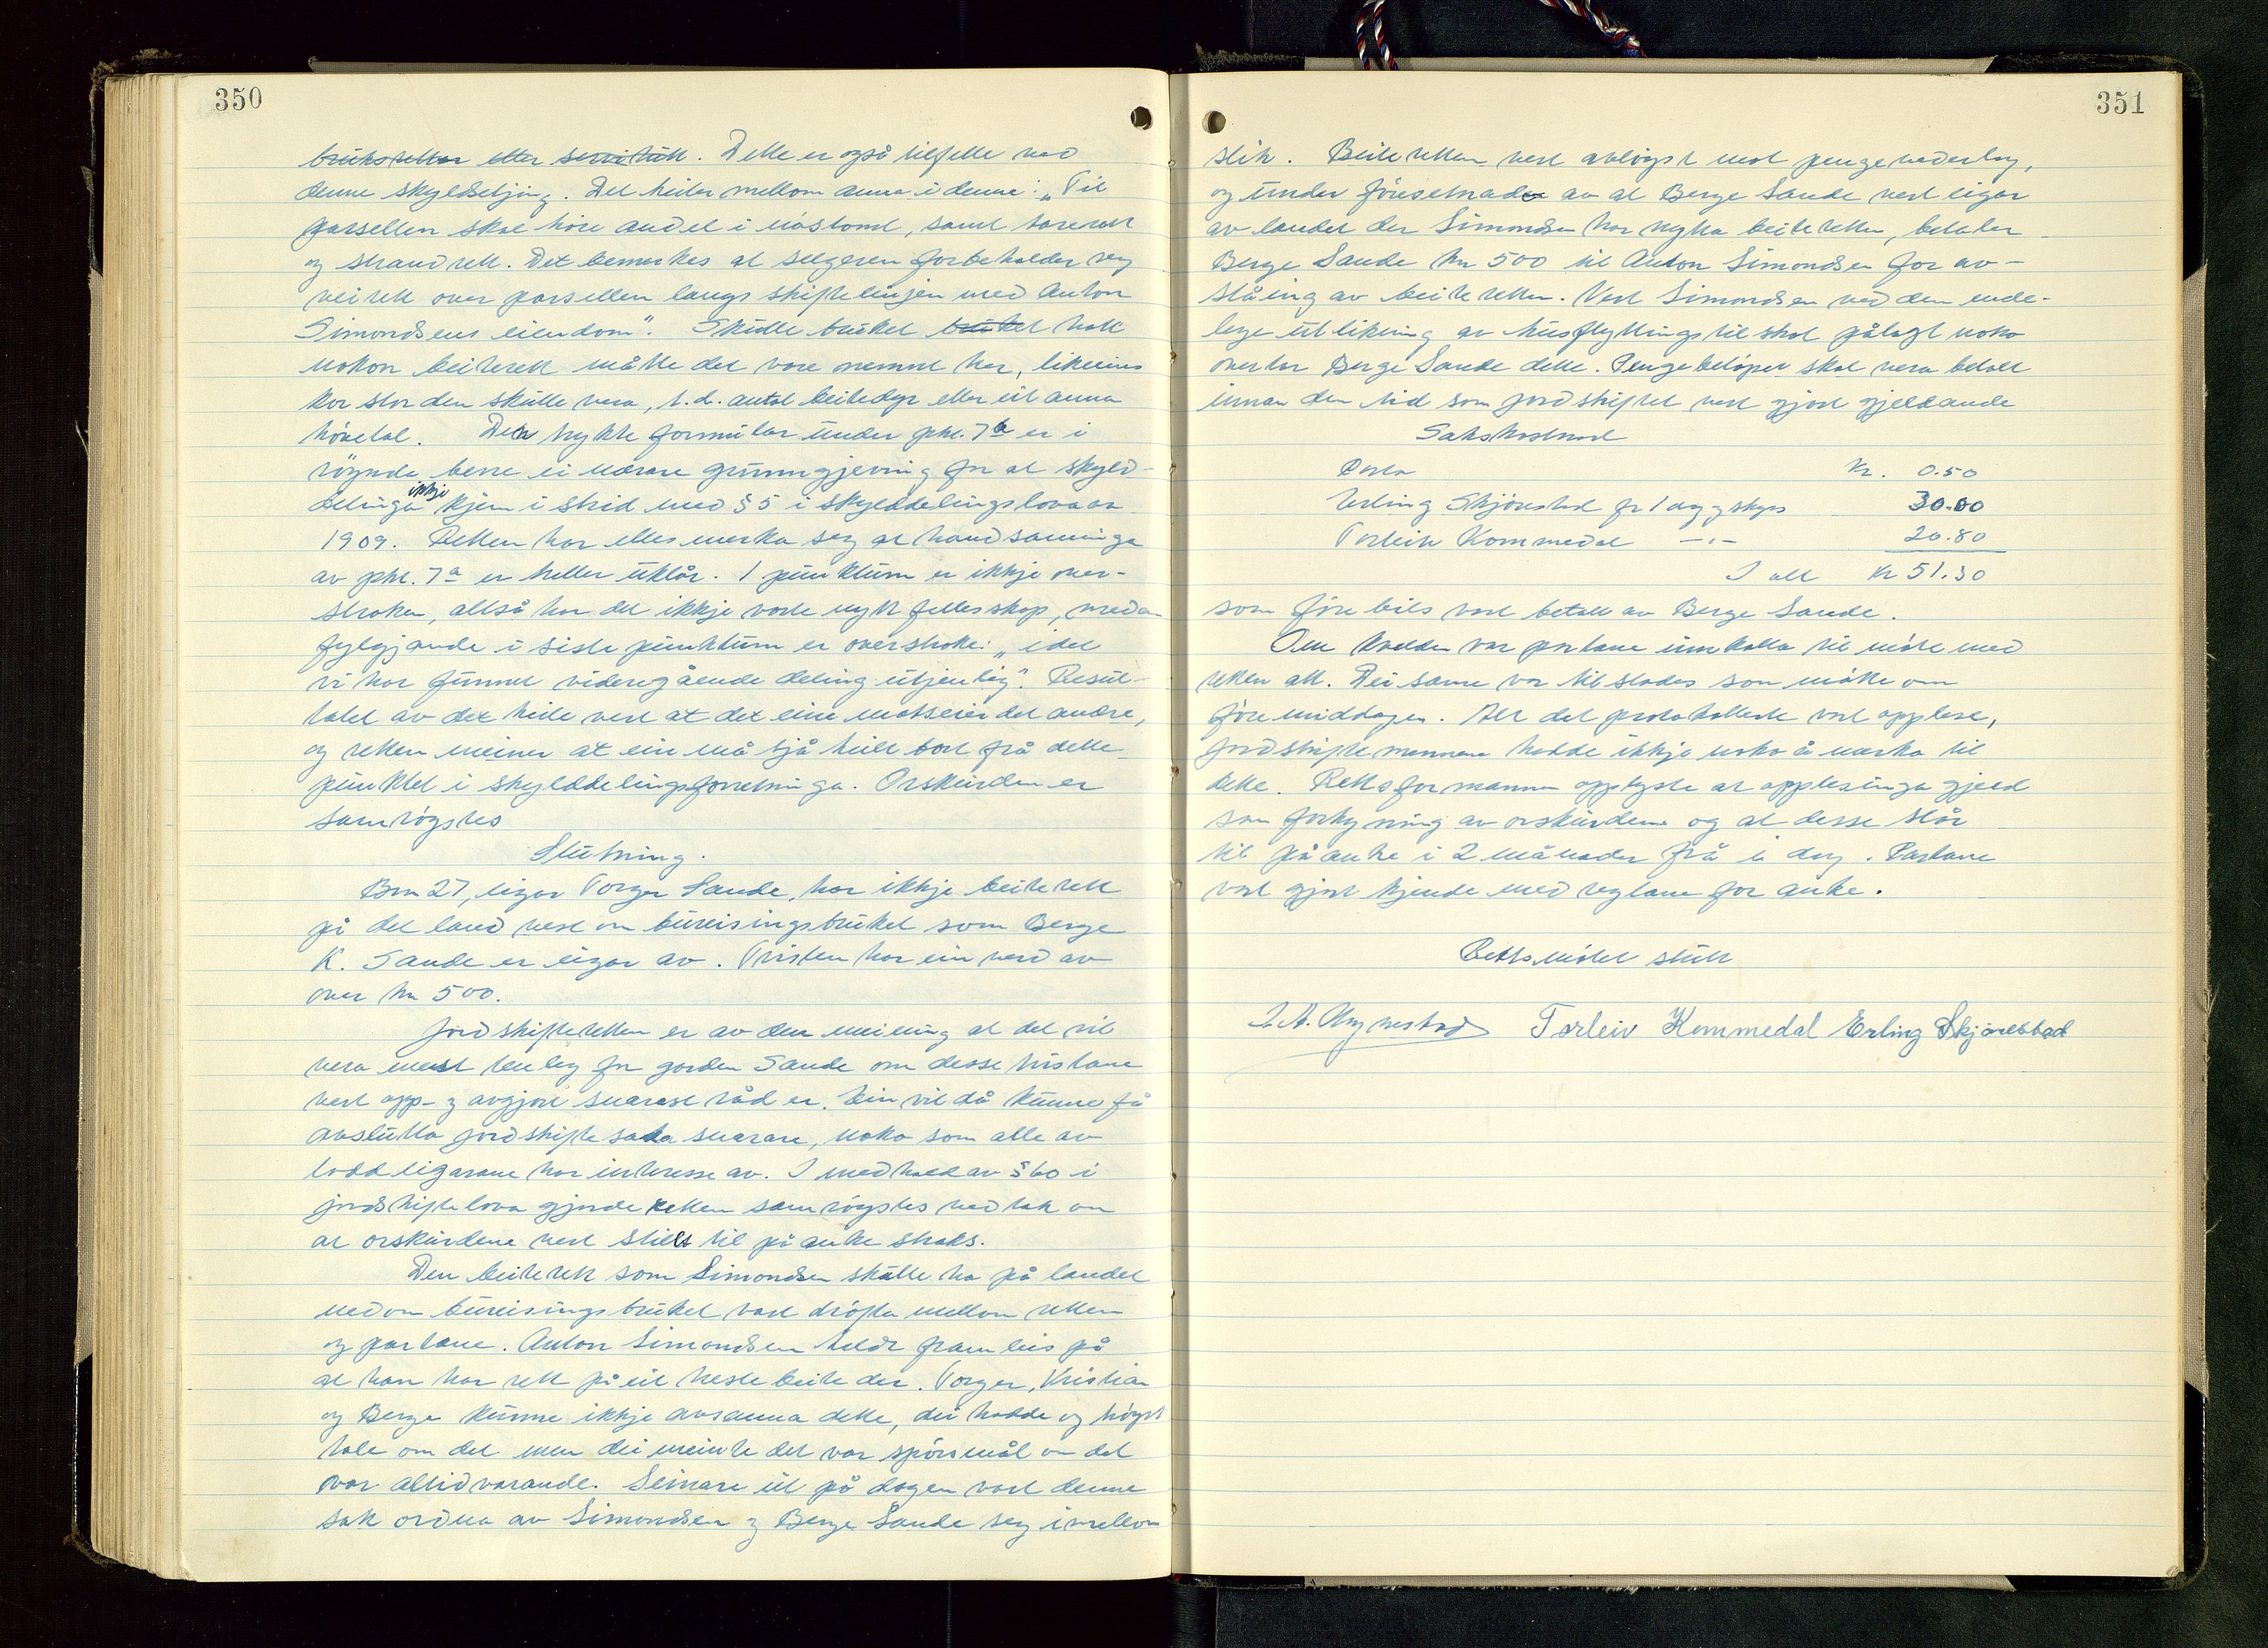 350
bruksrettar etter servitutt. Dette er også tilfelle ved
denne skyldsetjing. Det heiter mellom anna i denne: „Til
parsellen skal höre andel i nöstomt, samt tarerett
og strandrett. Det bemerkes at selgeren forbeholder seg
veirett over parsellen langs skiftelinjen med Anton
Simondsens eiendom". Skulle bruket bruket hatt
nokon beiterett måtte det vore nemnt her, likeeins
kor stor den skulle vera, t.d. antal beitedyr eller eit anna
hövetal. Den trykte formular under pkt. 7b er i
röynda berre ei nærare grunngjeving for at skyld-
delinga ikkje kjem i strid med § 5 i skylddelingslova av
1909. Retten har elles merka seg at handsaminga
av pkt. 7a er heller uklår. 1 punktum er ikkje over-
stroken, altså har det ikkje vorte nytt fellesskap, medan
fylgjande i siste punktum er overstroke: „idet
vi har funnet videregående deling utjenlig". Resul-
tatet av det heile vert at det eine motseier det andre,
og retten meiner at ein må sjå heilt bort frå dette
punktet i skylddelingsforretninga. Orskurden er
samröystes
Slutning.
Bnr 27, eigar Torger Sande, har ikkje beiterett
på det land vest om bureisingsbruket som Berge
K. Sande er eigar av. Tvisten har ein verd av
over kr 500.
Jordskifteretten er av den meining at det vil
vera mest tenleg for garden Sande om desse tvistane
vert opp- og avgjort snarast råd er. Ein vil då kunne få
avslutta jordskiftesaka snarare, noko som alle av
loddeigarane har interesse av. I medhald av § 60 i
jordskiftelova gjorde retten samröystes vedtak om
at orskurdene vert stillt til påanke straks.
Den beiterett som Simondsen skulle ha på landet
nedom bureisingsbruket vart dröfta mellom retten
og partane. Anton Simondsen heldt framleis på
at han har rett på eit hestebeite der. Torger, Kristian
og Berge kunne ikkje avsanna dette, dei hadde og höyrt
tale om det men dei meinte det var spörsmål om det
var alltidvarande. Seinare ut på dagen vart denne
sak ordna av Simondsen og Berge Sande seg imellom
351
slik. Beiteretten vert avlöyst mot pengevederlag,
og under föresetnad av at Berge Sande vert eigar
av landet der Simondsen har nytta beiteretten, betaler
Berge Sande kr 500 til Anton Simondsen for av-
ståing av beiteretten. Vert Simondsen ved den ende-
lege utlikning av husflyttingstilskot pålagt noko
overtar Berge Sande dette. Pengebelöpet skal vera betalt
innan den tid som jordskiftet vert gjort gjeldande
Sakskostnad
Porto Kr. 0.50
Erling Skjörestad for 1 dag og skyss 30.00
Torleiv Kommedal -"- 20.80
I alt Kr 51.30
som förebils vart betalt av Berge Sande.
Om kvelden var partane innkalla til möte med
retten att. Dei same var tilstades som mötte om
föremiddagen. Alt det protokollerte vart opplese,
jordskiftemennene hadde ikkje noko å merka til
dette. Rettsformannen opplyste at opplesinga gjeld
som forkynning av orskurdene og at desse står
til påanke i 2 månader frå i dag. Partane
vart gjort kjende med reglane for anke.
Rettsmötet slutt
Torleiv Kommedal Erling Skjörestad